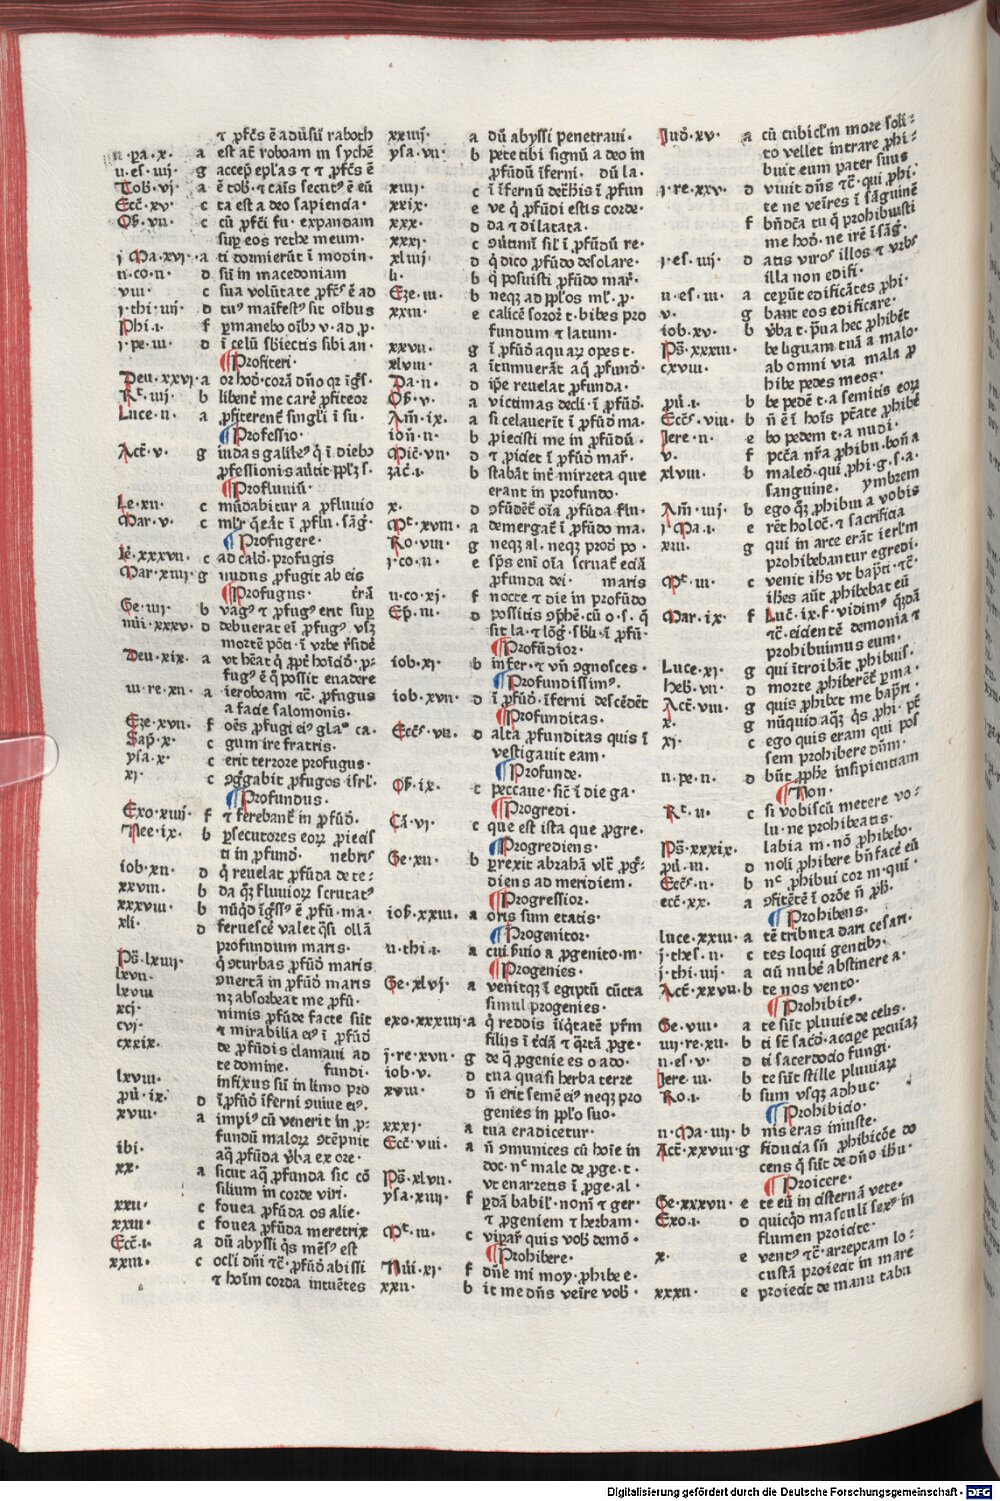 ⁊ ꝓfcs̄ ē adūsū raboth
ii·pa·x· a est at̄ roboam in sychē
ii·es·iiij· g accep eplas ⁊ ⁊ ꝓfcs̄ ē
Tob·vj· a ē tob·⁊ caīs secut⁹ ē eū
Ecc̄·xv· c ta est a deo sapiencia·
Ose·vii· c cū ꝓfcī fu·expandam
sup eos rethe meum·
j Ma·xvj·a ti dormierūt ī modin·
ii·co·ii· d sū in macedoniam
viii· c sua volūtate ꝓfcs̄ ē ad
j·thi·iiij· d tu⁹ maīfest⁹ sit oībus
Phi·i· f ꝑmanebo oībꝫ v·ad p·
j·pe·iii· d ī celū sbiectis sibi an·
¶Profiteri·
Deu·xxvj·a or hod·corā dn̄o qꝛ īgs̄·
Rt̄·iiij· b libent̄ me carē ꝓfiteor
Luce·ii· a ꝓfiterent̄ singli ī su·
¶Professio·
Act̄·v· g iudas galile⁹ q̄ ī diebꝫ
ꝓfessionis aūtit pplꝫ s·
¶Profluuiū·
Le·xii· c mūdabitur a ꝓfluuio
Mar·v· c mlr q̄ eāt ī ꝓflu·sāg·
¶Profugere·
Ie·xxxvii· c ad caldꝫ·ꝓfugis
Mar·xiiij g nudus ꝓfugit ab eis
¶Profugus· t̄rā
Ge·iiij· b vag⁹ ⁊ ꝓfug⁹ erit sup
nūi·xxxv· d debuerat eī ꝓfug⁹ vsꝫ
mortē pōti·ī vrbe r̄sidē
Deu·xix· a vt hēat q̄ ꝓpt̄ hoīcidꝫ·ꝓ-
fug⁹ ē q̄ possit euadere
iii·re·xii· a ieroboam tc̄·ꝓfugus
a facie salomonis·
Eze·xvii· f oēs ꝓfugi ei⁹ gla⁰ ca·
Sap·x· c gum ire fratris·
ysa·x· c erit terrore profugus·
xj· c ꝯḡgabit ꝓfugos isrl·
¶Profundus·
Exo·xiiij f ⁊ ferebant̄ in ꝓfūdꝫ·
Nee·ix· b ꝑsecutores eoꝝ ꝓiecis
ti in ꝓfundꝫ· nebris
iob·xii· d q̄ reuelat ꝓfūda de te:
xxviii· b da qꝫ fluuioꝝ scrutat⁹
xxxviii· b nūqd īgss⁹ ē ꝓfū·ma·
xli· d feruescē valet qsi ollā
profundum maris·
Ps̄·lxiiij q̄ ꝯturbas ꝓfūdꝫ maris
lxvii· ꝯuertā in ꝓfūdꝫ maris
lxviii nꝫ absorbeat me ꝓfū·
xcj· nimis ꝓfūde facte sūt
cvj· ⁊ mirabilia ei⁹ ī ꝓfūdꝫ
cxxix· de ꝓfūdis clamaui ad
te domine· fundi·
lxviii· infixus sū in limo pro
pū·ix· d ī ꝓfūdꝫ īferni ꝯuiue ei⁹·
xviii· a impi⁹ cū venerit in ꝓ-
fundū maloꝝ ꝯtēpnit
ibi· aq̄ ꝓfūda v̄ba ex ore·
xx· a sicut aq̄ ꝓfunda sic cō
silium in corde viri·
xxii· c fouea ꝓfūda os alie·
xxiii· c fouea ꝓfūda meretrix
Ecc̄·i· a dū abyssi qs mēs⁹ est
xxiii· c ocli dn̄i tc̄·ꝓfūdꝫ abissi
⁊ hoīm corda intuētes
xxiiij· a dū abyssi penetraui·
ysa·vii· b pete tibi signū a deo in
ꝓfūdū īferni· dū la·
xiiij· c ī īfernū detrhis ī ꝓfun
xxix· e ve q̄ ꝓfūdi estis corde·
xxx· d da ⁊ dilatata·
xxxj· c ꝯūtimī sil ī ꝓfūdū re·
xliiij d q̄ dico ꝓfūdo desolare·
li· b q̄ posuisti ꝓfūdo mar·
Eze·iii· b neqꝫ ad pplos ml·p·
xxiii· e calicē soror t·bibes pro
fundum ⁊ latum·
xxvii· g ī ꝓfūdꝫ aquaꝝ opes t·
xlviii· a ītumuerāt aq̄ ꝓfundꝫ·
Da·ii· d ipē reuelat ꝓfunda·
Ose·v· a victimas decli·ī ꝓfūdꝫ·
Am̄·ix· a si celauerit ī ꝓfūdꝫ ma·
ion̄·ii· b piecisti me in ꝓfūdū·
Mic̄·vii· d ⁊ piciet ī ꝓfūdꝫ mar·
zac̄·i· b stabāt int̄ mirzeta que
erant in profundo·
x· d ꝯfūdēt̄ oīa ꝓfūda flu·
Mt̄·xviii· a demergat̄ ī ꝓfūdo ma·
Ro·viii· g neqꝫ al·neqꝫ prodꝫ po·
j·co·ii· e sps̄ enī oīa scrutat̄ eciā
ꝓfunda dei· maris
ii·co·xj· f nocte ⁊ die in profūdo
Ep̄·iii· d possitis ꝯphē·cū o·s·q̄
sit la·⁊ lōg·sbli·ī ꝓfū·
¶Profūdior·
iob·xj· b infer·⁊ vn̄ ꝯgnosces·
¶Profundissim⁹·
iob·xvii· d ī ꝓfūdꝫ·īferni descēdēt
¶Profunditas·
Eccs̄·vii· d alta ꝓfunditas quis ī
vestigauit eam·
¶Profunde·
Ose·ix· t peccaue·sic̄ ī die ga·
¶Progredi·
Cā·vj· c que est ista que ꝓgre·
¶Progrediens·
Ge·xii· b ꝑrexit abrahā vlt̄ ꝓḡ-
diens ad meridiem·
¶Progressior·
iosꝫ·xxiii· a oris sum etatis·
¶Progenitor·
ii·thi·i· a cui ẜuio a ꝓgenito·m·
¶Progenies·
Ge·xlvj· a venitqꝫ ī egiptū cūcta
simul progenies·
exo·xxxiiij·a q̄ reddis īiq̄tatē prm̄
filijs ī t̄ciā ⁊ q̄rtā ꝓge·
j·re·xvii· g de q̄ ꝓgenie es o ado·
iob·v· d tua quasi herba terre
xviii· d n̄ erit semē ei⁹ neqꝫ pro
genies in pplo suo·
xxxj· a tua eradicetur·
Ecc̄·viii· a n̄ ꝯmunices cū hoīe in
doc·nc̄ male de ꝓge·t·
Ps̄·xlvii· vt enarretis ī ꝓge·al·
ysa·xiiij· f ꝑdā babil·nomē ⁊ ger
⁊ ꝓgeniem ⁊ herbam·
Mt̄·iii· c viparꝫ quis vobꝫ demō·
¶Prohibere·
Nūi·xj· f dn̄e mi moy·phibe e·
xxii· b it me dn̄s veīre vobꝫ·
Iud·xv· a cū cubicl̄m more soli:
to vellet intrare ꝓhi-
buit eum pater suus
j·re·xxv· d viuit dn̄s tc̄·qui phi·
te ne veīres ī sāguinē
f bn̄dc̄a tu q̄ prohibuisti
me hodꝫ·ne irē ī sāg·
j·es·iiij· d atis viros illos ⁊ vrbs
illa non edifi·
ii·es·iii· a cepūt edificātes phi·
v· g bant eos edificare·
iob·xv· b v̄ba t·p̄ua hec ꝓhibēt
Ps̄·xxxiii· be liguam tuā a malo·
cxviii· ab omni via mala p
hibe pedes meos·
pū·i· b be pedē t·a semitis eoꝝ
Eccs̄·viii· b n̄ ē ī hoīs ptāte ꝓhibē
Jere·ii· e bo pedem t·a nudi·
v· f pcc̄a nr̄a phibu·bon̄ a
xlviii· b maledꝫ·qui phi·g·s·a·
sanguine· ymbrem
Am̄·iiij· b ego qꝫ phibui a vobis
j Ma·i· e rēt holoc̄·⁊ sacrificia
xiii· g qui in arce erāt ierlm̄
prohibebantur egredi·
Mt̄·iii· c venit ihūs vt bapti·tc̄·
ihēs aūt ꝓhibebat eū
Mar·ix· f Luc̄·ix·f·vidim⁹ q̄ꝫdā
tc̄·eicientē demonia ⁊
prohibuimus eum·
Luce·xj· g qui ītroibāt phibuis·
Heb·vii· d morte phiberēt̄ ꝑma·
Act̄·viii· g quis phibet me bapti·
x· g nūquid aqꝫ qs phi·pt̄
xj· c ego quis eram qui pos
sem prohibere dūm·
ii·pe·ii· d būt pphe insipientiam
¶Non·
Rt̄·ii· c si vobiscū metere vo-
lu·ne prohibeatis·
Ps̄·xxxix· labia m·nō phibebo·
pū·iii· d noli phibere bn̄facē eū
Eccs̄·ii· b nc̄ phibui cor m·qui·
ecc̄·xx· a ꝯfitētē ī orōe n̄ phꝫ·
¶Prohibens·
luce·xxiii· a tē tributa dari cesari·
j·thes·ii· c tes loqui gentibꝫ·
j·thi·iiij· a cū nubē abstinere a·
Act̄·xxvii·b te nos vento·
¶Prohibit⁹·
Ge·viii· a te sūt pluuie de celis·
iiij·re·xii· b ti st̄ sacdꝫ·accipe pecuiaꝫ
ii·es·v· d ti sacerdocio fungi·
Jere·iii· b te sūt stille pluuiaꝝ
Ro·i· b sum vsqꝫ adhuc·
¶Prohibicio·
ii·Ma·iiij· b nis eras iniuste·
Act̄·xxviii·g fiducia sn̄ ꝓhibicōe do
cens q̄ sūt de dn̄o ihū·
¶Proicere·
Ge·xxxvii· e te eū in cisternā vete·
Exo·i· d quicqd masculi sex⁹ in
flumen proicite·
x· e vent⁹ tc̄·arreptam lo:
custā proiecit in mare
xxxii· e proiecit de manu tabu
Digitalisierung gefördert durch die Deutsche Forschungsgemeinschaft · DFG